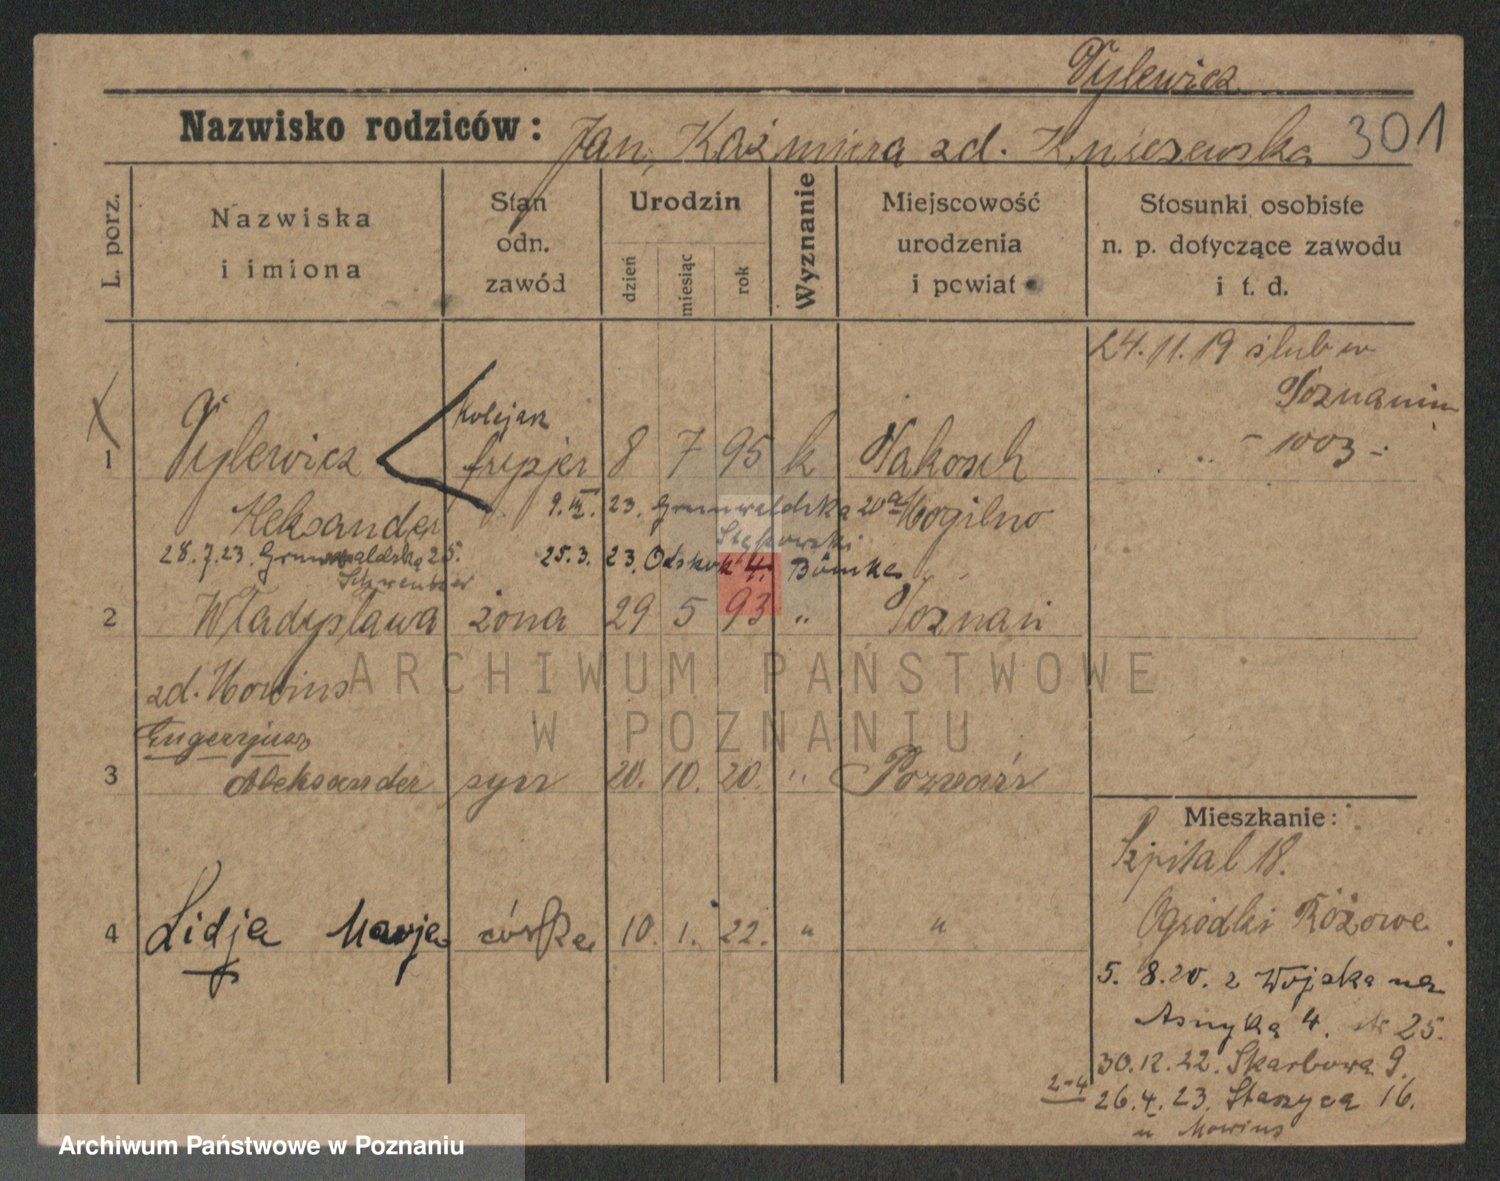 Pylewicz
Nazwisko rodziców: Jan, Kaźmiera zd. Kniszewska 301
L. porz.
Nazwiska i imiona
Stan odn. zawód
Urodzin
dzień
miesiąc
rok
Wyznanie
Miejscowość urodzenia i powiat
Stosunki osobiste n. p. dotyczące zawodu i t. d.
24. 11. 19 ślub w
Poznaniu
- 1003 -
kolejarz
1 Pylewicz fryzjer 8 7 95 k Pakosch
Aleksander Mogilno
9. III. 23. Grunwaldzka 20a
28. 7. 23. Grunwaldzka 25.
25. 3. 23. 4.
2 Władysława żona 29 5 93 " Poznań
zd. Mowins
Eugenjusz
3 Aleksander syn 20. 10. 20. " Poznań
4 Lidja Marja córka 10. 1. 22. " "
Mieszkanie:
Szpital 18.
Ogródki Różowe
5. 8. 20. z Wojska na
Asnyka 4. 25.
30. 12. 22. Skarbowa 9.
2-4 26. 4. 23. Staszyca 16.
u Mowins
ARCHIWUM PAŃSTWOWE
W POZNANIU
Archiwum Państwowe w Poznaniu